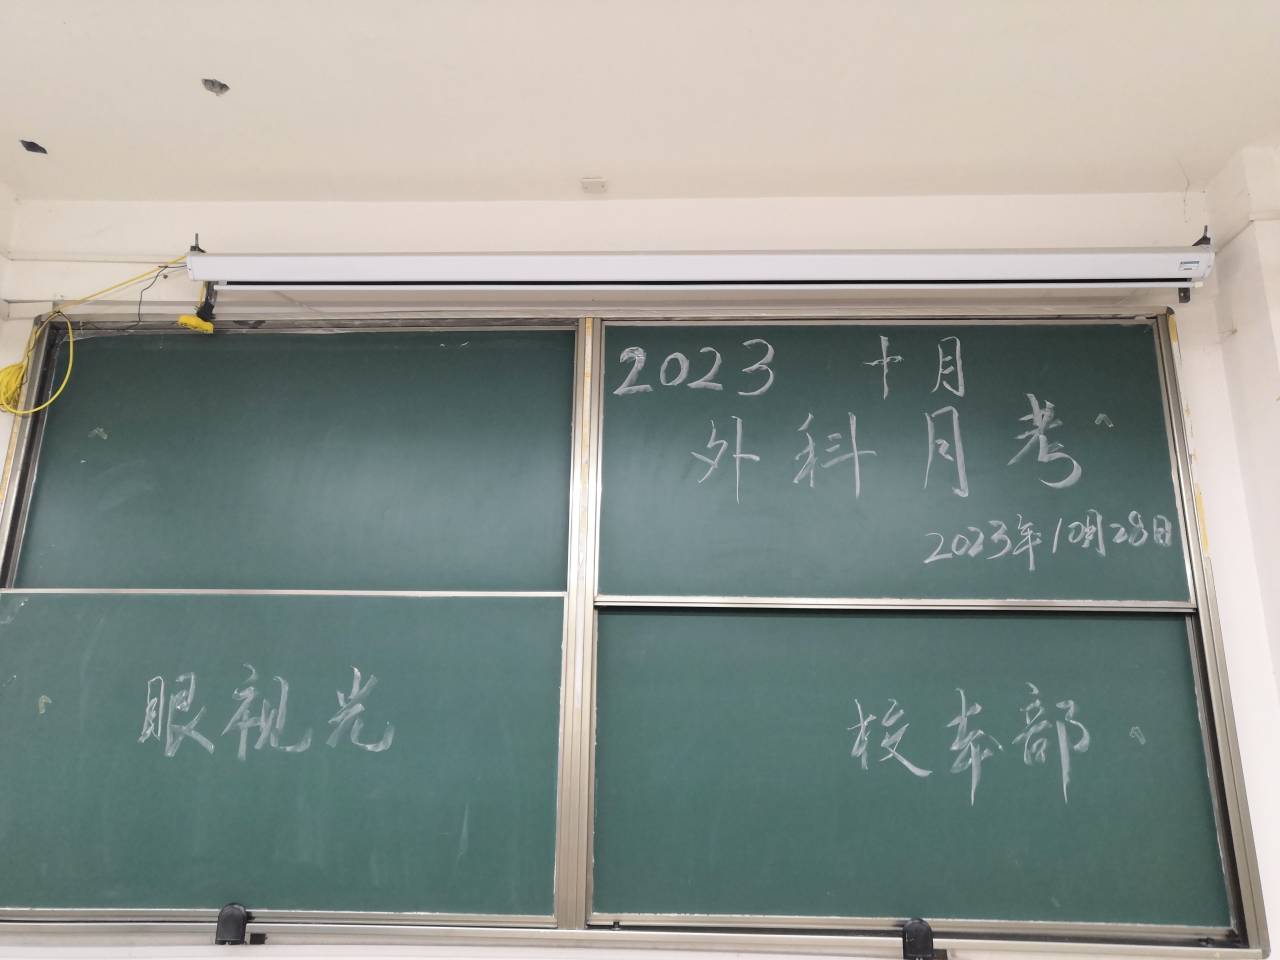 2023 十月
外科月考
2023年10月28日
眼视光
校本部